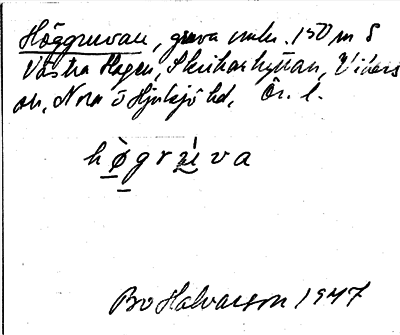 Höggruvan, gruva omkr. 150 m S
Västra Hagen, Skrikarhyttan, Vikers
sn, Nora o Hjulsjö hd, Ör. l.
hø̀grúva
Bo Halvarson 1947